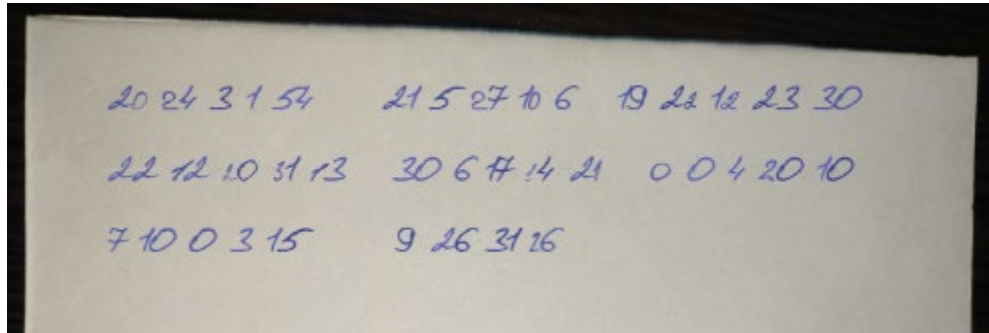 20 24 3 1 54 21 5 27 10 6 19 22 12 23 30
22 12 20 31 13 30 6 17 14 21 0 0 4 20 10
7 10 0 3 15 9 26 31 26